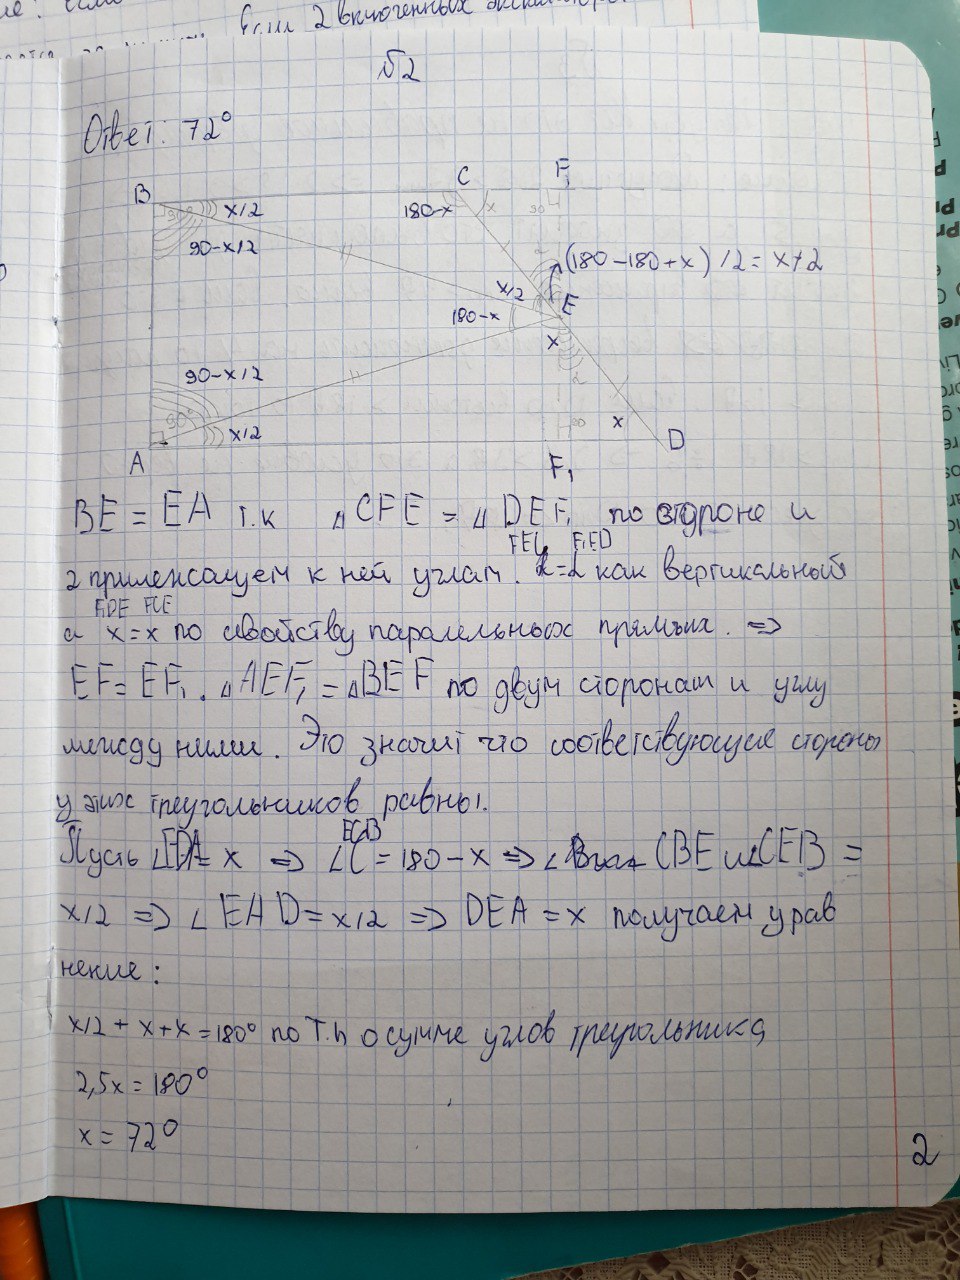 №2
Ответ: 72°
B
C
F₁
x/2
180-x
x
90
90-x/2
(180-180+x)/2 = x/2
x/2
E
180-x
x
90-x/2
90°
x/2
x
A
F₁
D
BE = EA т.к △CFE = △DEF₁ по стороне и
FEC F₁ED
2 прилежащем к ней углам. ∠=∠ как вертикальный
F₁DE FCE
а x=x по свойству паралельных прямых. =>
EF = EF₁. △AEF₁ = △BEF по двум сторонам и углу
между ними. Это значит что соответствующие стороны
у этих треугольников равны.
ECB
Пусть ∠EDA = x => ∠C = 180-x => ∠ CBE и ∠CEB =
x/2 => ∠EAD = x/2 => DEA = x получаем урав
нение:
x/2 + x + x = 180° по т. о сумме углов треугольника
2,5x = 180°
x = 72°
2